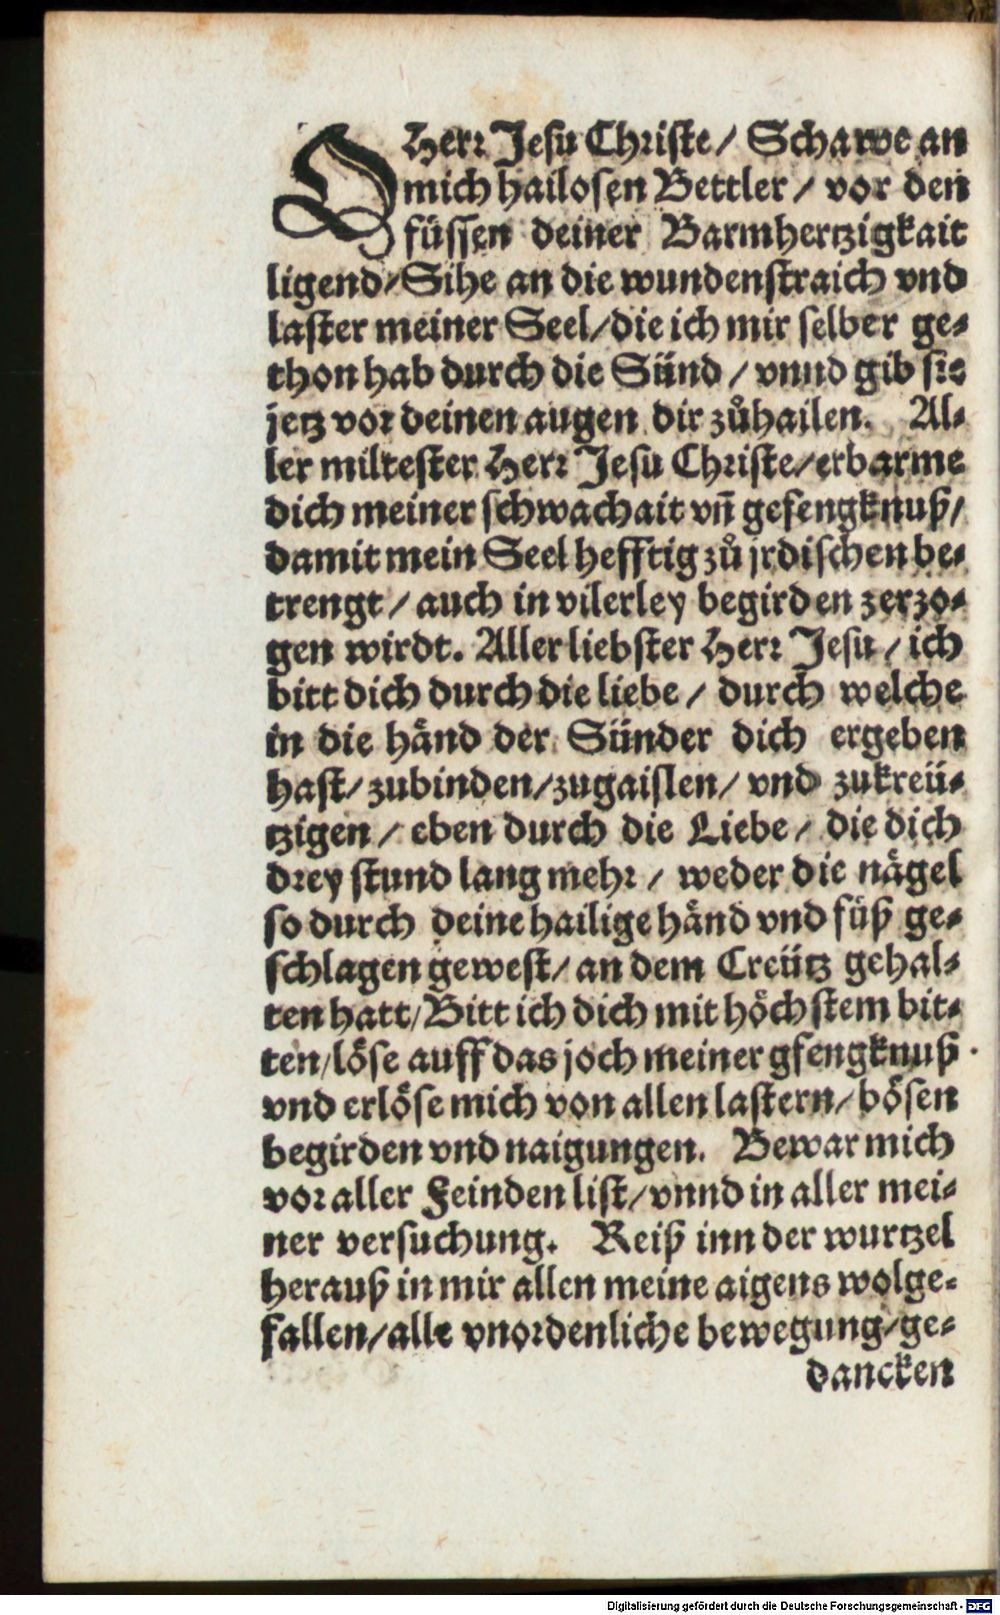 O Herr Jesu Christe/ Schawe an
mich hailosen Bettler/ vor den
füssen deiner Barmhertzigkait
ligend/ Sihe an die wundenstraich vnd
laster meiner Seel/ die ich mir selber ge-
thon hab durch die Sünd/ vnnd gib sie
jetz vor deinen augen dir zůhailen. Al-
ler miltester Herr Jesu Christe/ erbarme
dich meiner schwachait vñ gefengknuß/
damit mein Seel hefftig zů jrdischen be-
trengt/ auch in vilerley begirden zerzo-
gen wirdt. Aller liebster Herr Jesu/ ich
bitt dich durch die liebe/ durch welche
in die händ der Sünder dich ergeben
hast/ zubinden/ zugaislen/ vnd zukreü-
tzigen/ eben durch die Liebe/ die dich
drey stund lang mehr/ weder die nägel
so durch deine hailige händ vnd füß ge-
schlagen gewest/ an dem Creütz gehal-
ten hatt/ Bitt ich dich mit höchstem bit-
ten/ löse auff das joch meiner gfengknuß
vnd erlöse mich von allen lastern/ bösen
begirden vnd naigungen. Bewar mich
vor aller Feinden list/ vnnd in aller mei-
ner versuchung. Reiß inn der wurtzel
herauß in mir allen meine aigens wolge-
fallen/ alle vnordenliche bewegung/ ge-
dancken
Digitalisierung gefördert durch die Deutsche Forschungsgemeinschaft - DFG